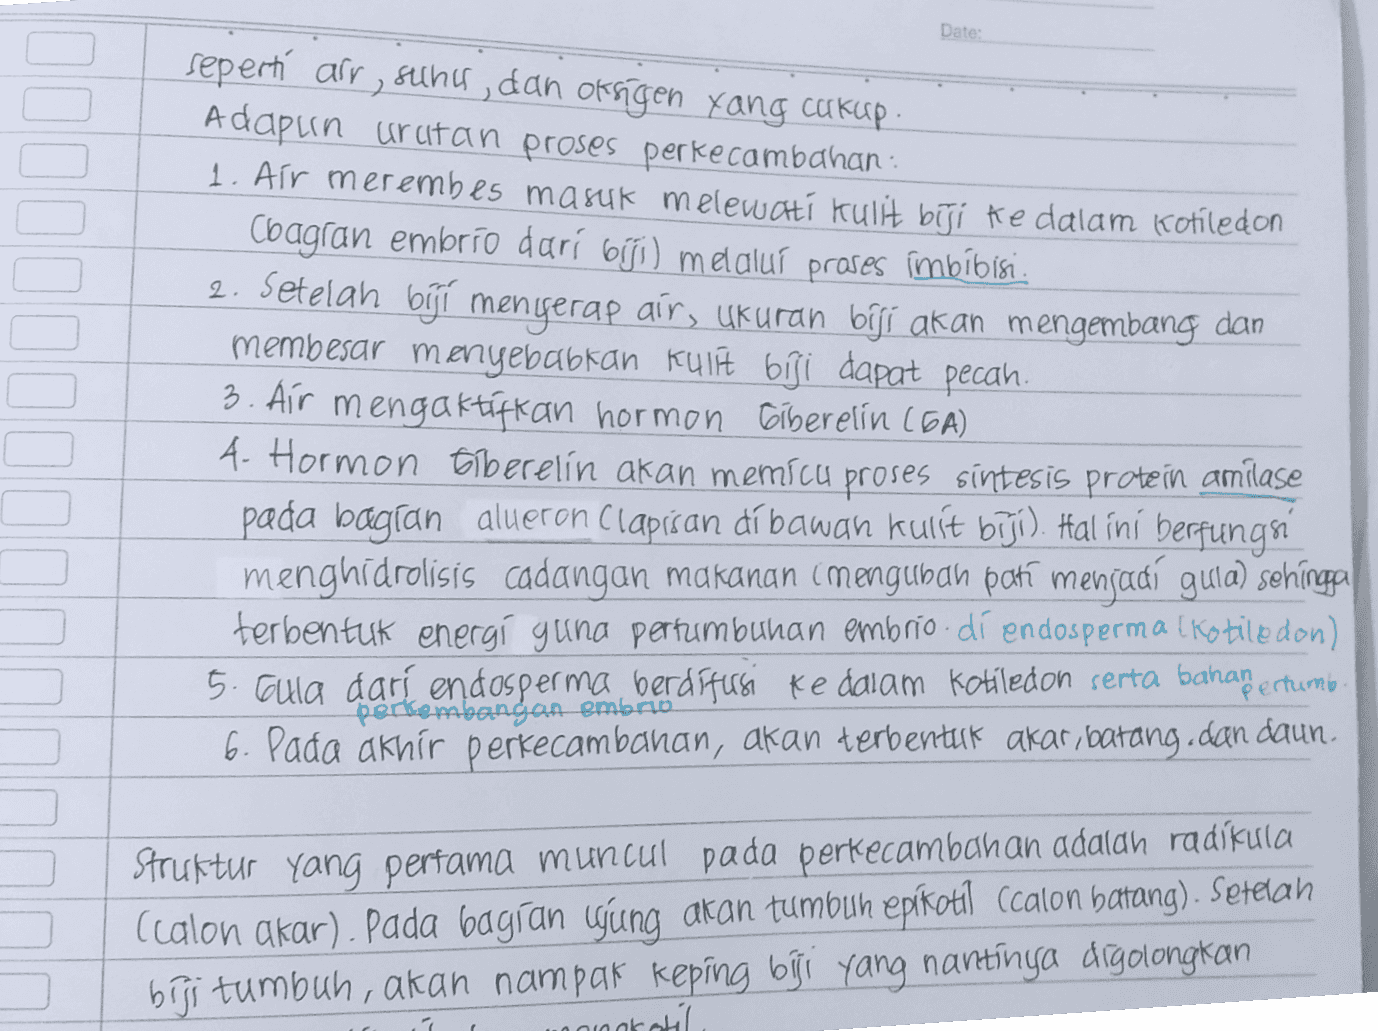 Date:
seperti air, suhu, dan oksigen yang cukup.
Adapun urutan proses perkecambahan:
1. Air merembes masuk melewati kulit biji ke dalam kotiledon
(bagian embrio dari biji) melalui proses imbibisi.
2. Setelah biji menyerap air, ukuran biji akan mengembang dan
membesar menyebabkan kulit biji dapat pecah.
3. Air mengaktifkan hormon Giberelin (GA)
4. Hormon Giberelin akan memicu proses sintesis protein amilase
pada bagian alueron (lapisan dibawah kulit biji). Hal ini berfungsi
menghidrolisis cadangan makanan (mengubah pati menjadi gula) sehingga
terbentuk energi guna pertumbuhan embrio. di endosperma (kotiledon)
5. Gula dari endosperma berdifusi ke dalam kotiledon serta bahan pertumb.
perkembangan embrio
6. Pada akhir perkecambahan, akan terbentuk akar, batang, dan daun.
Struktur yang pertama muncul pada perkecambahan adalah radikula
(calon akar). Pada bagian ujung akan tumbuh epikotil (calon batang). Setelah
biji tumbuh, akan nampak keping biji yang nantinya digolongkan